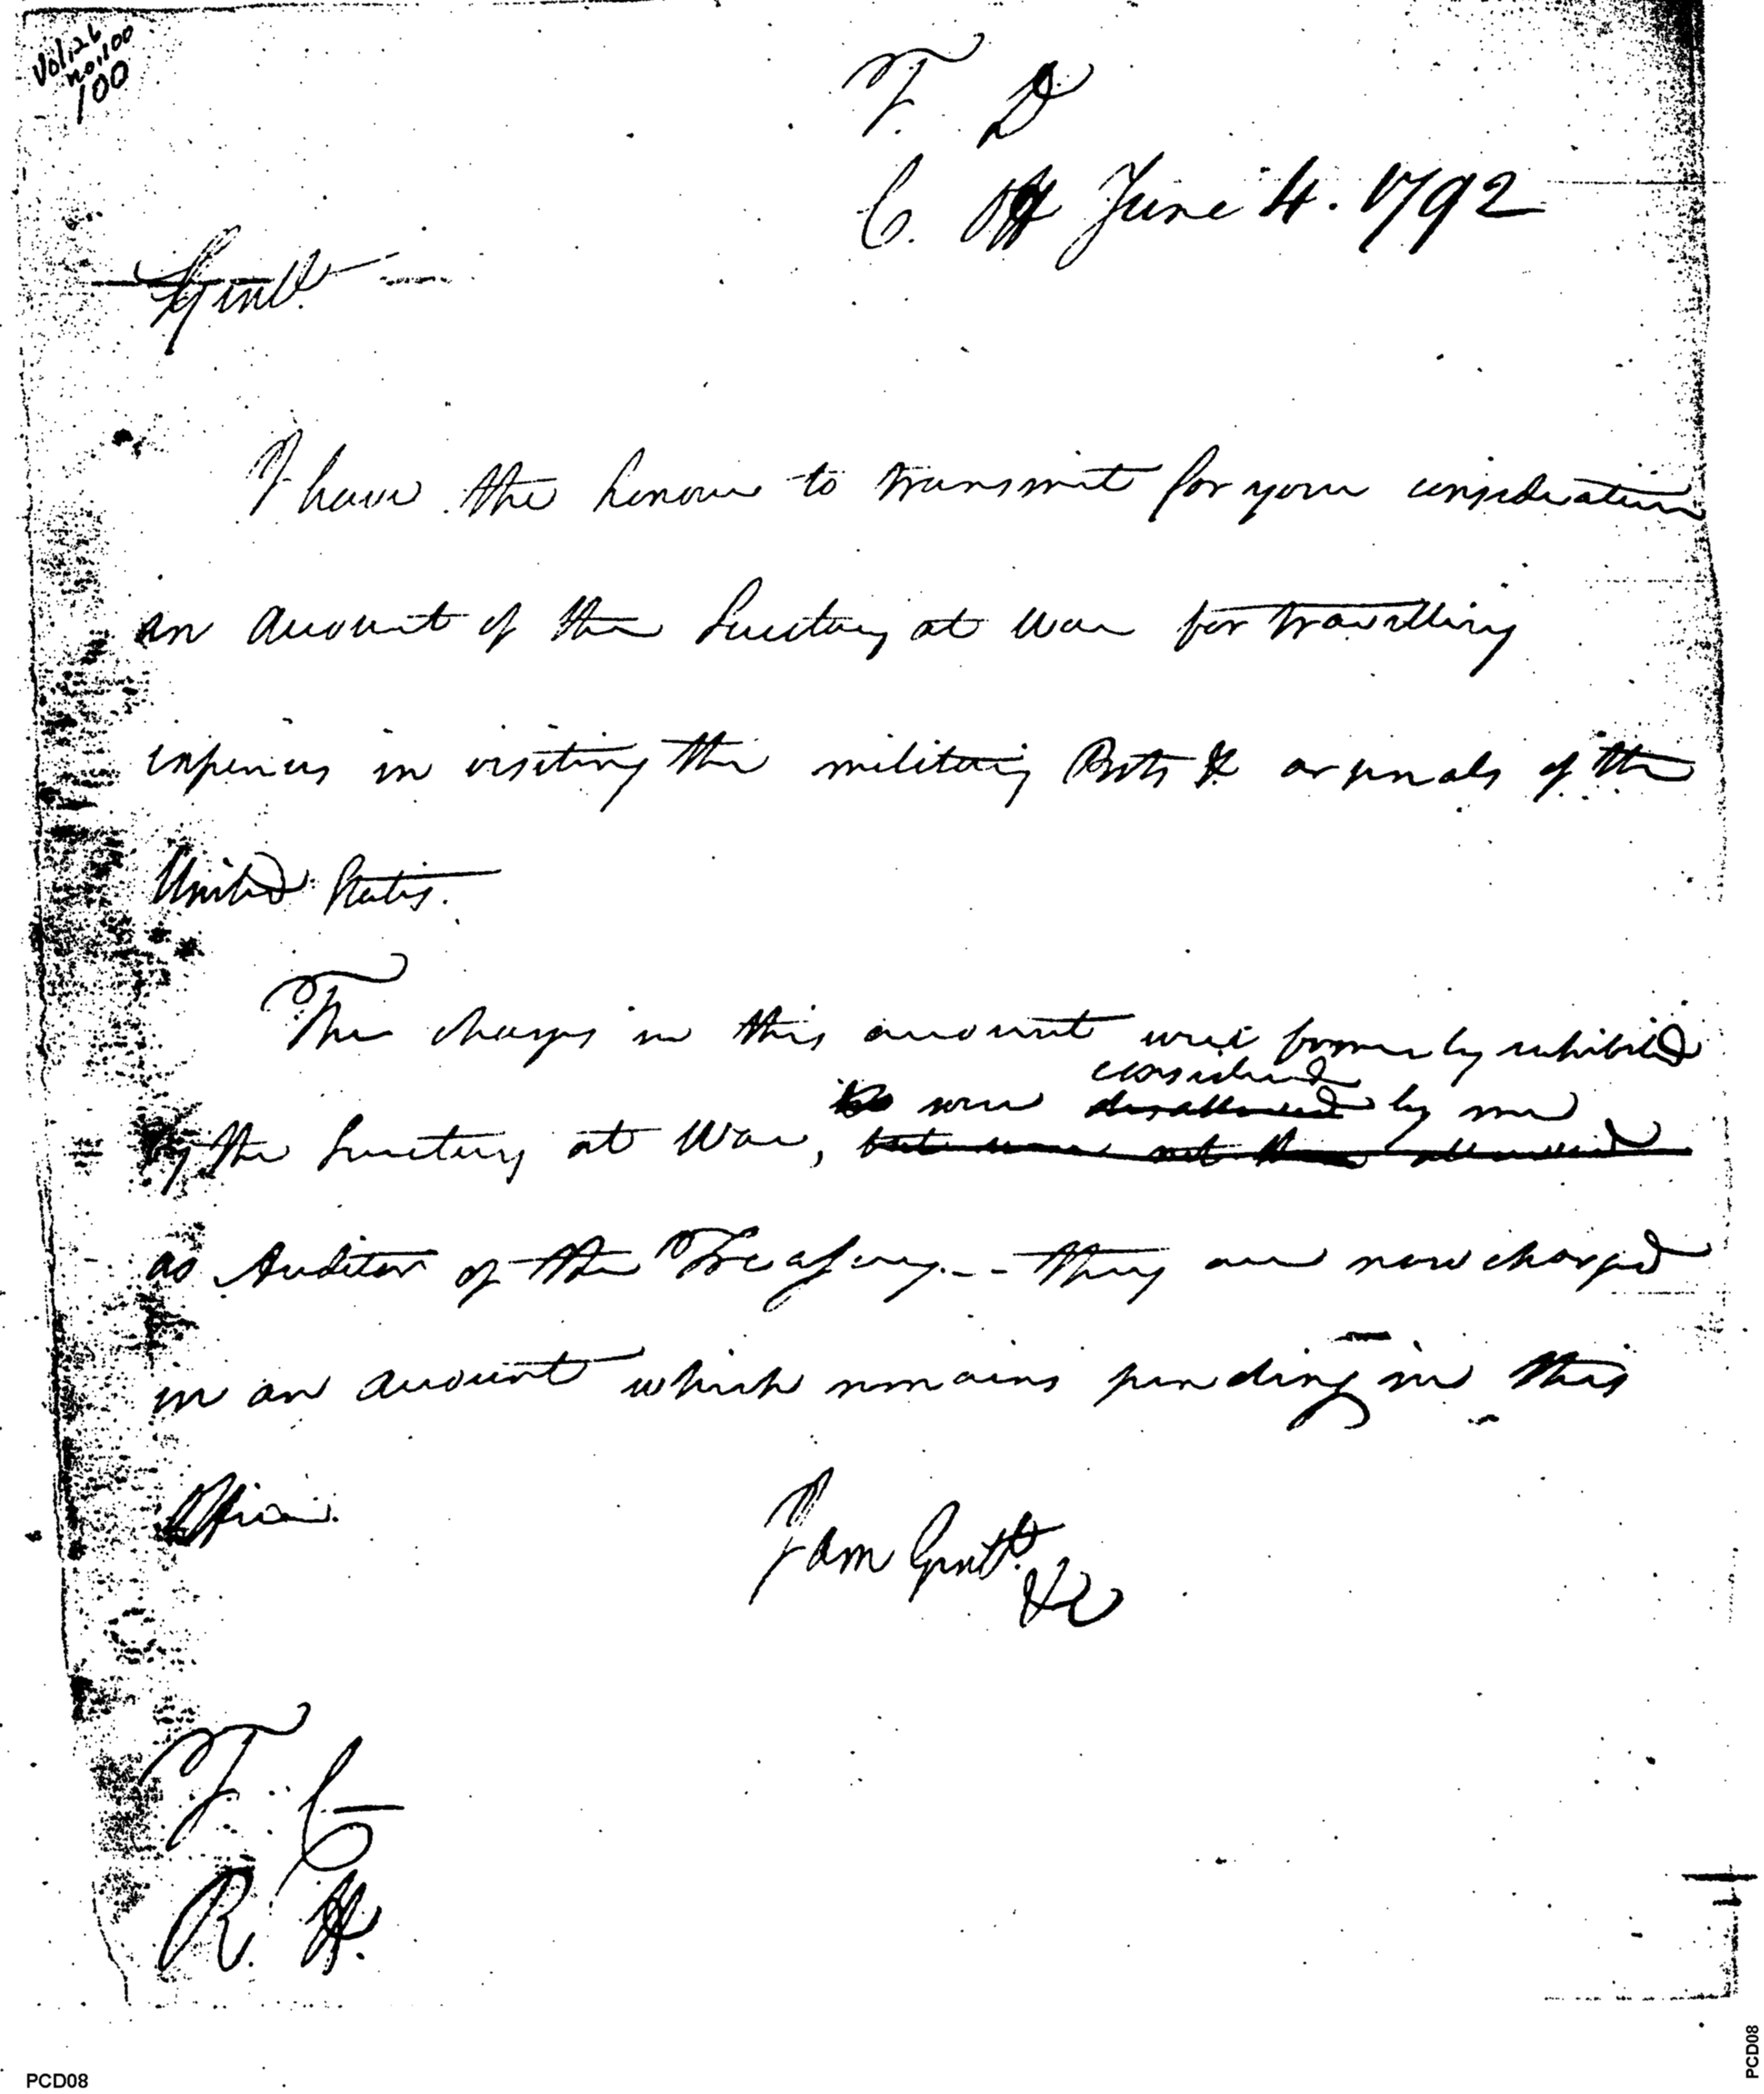 Vol. 26
no. 100
100
T. D
C. O June 4. 1792
Gentl.
I have the honour to transmit for your consideration
an account of the Secretary at War for travelling
expences in visiting the military Posts & arsenals of the
United States.
The charges in this account were formerly exhibited
considered
were disallowed by me
by the Secretary at War, but were not then allowed
as Auditor of the Treasury -- they are now charged
in an account which remains pending in this
Office.
I am Gentl.
&c
T. C
R. H.
PCD08
PCD08